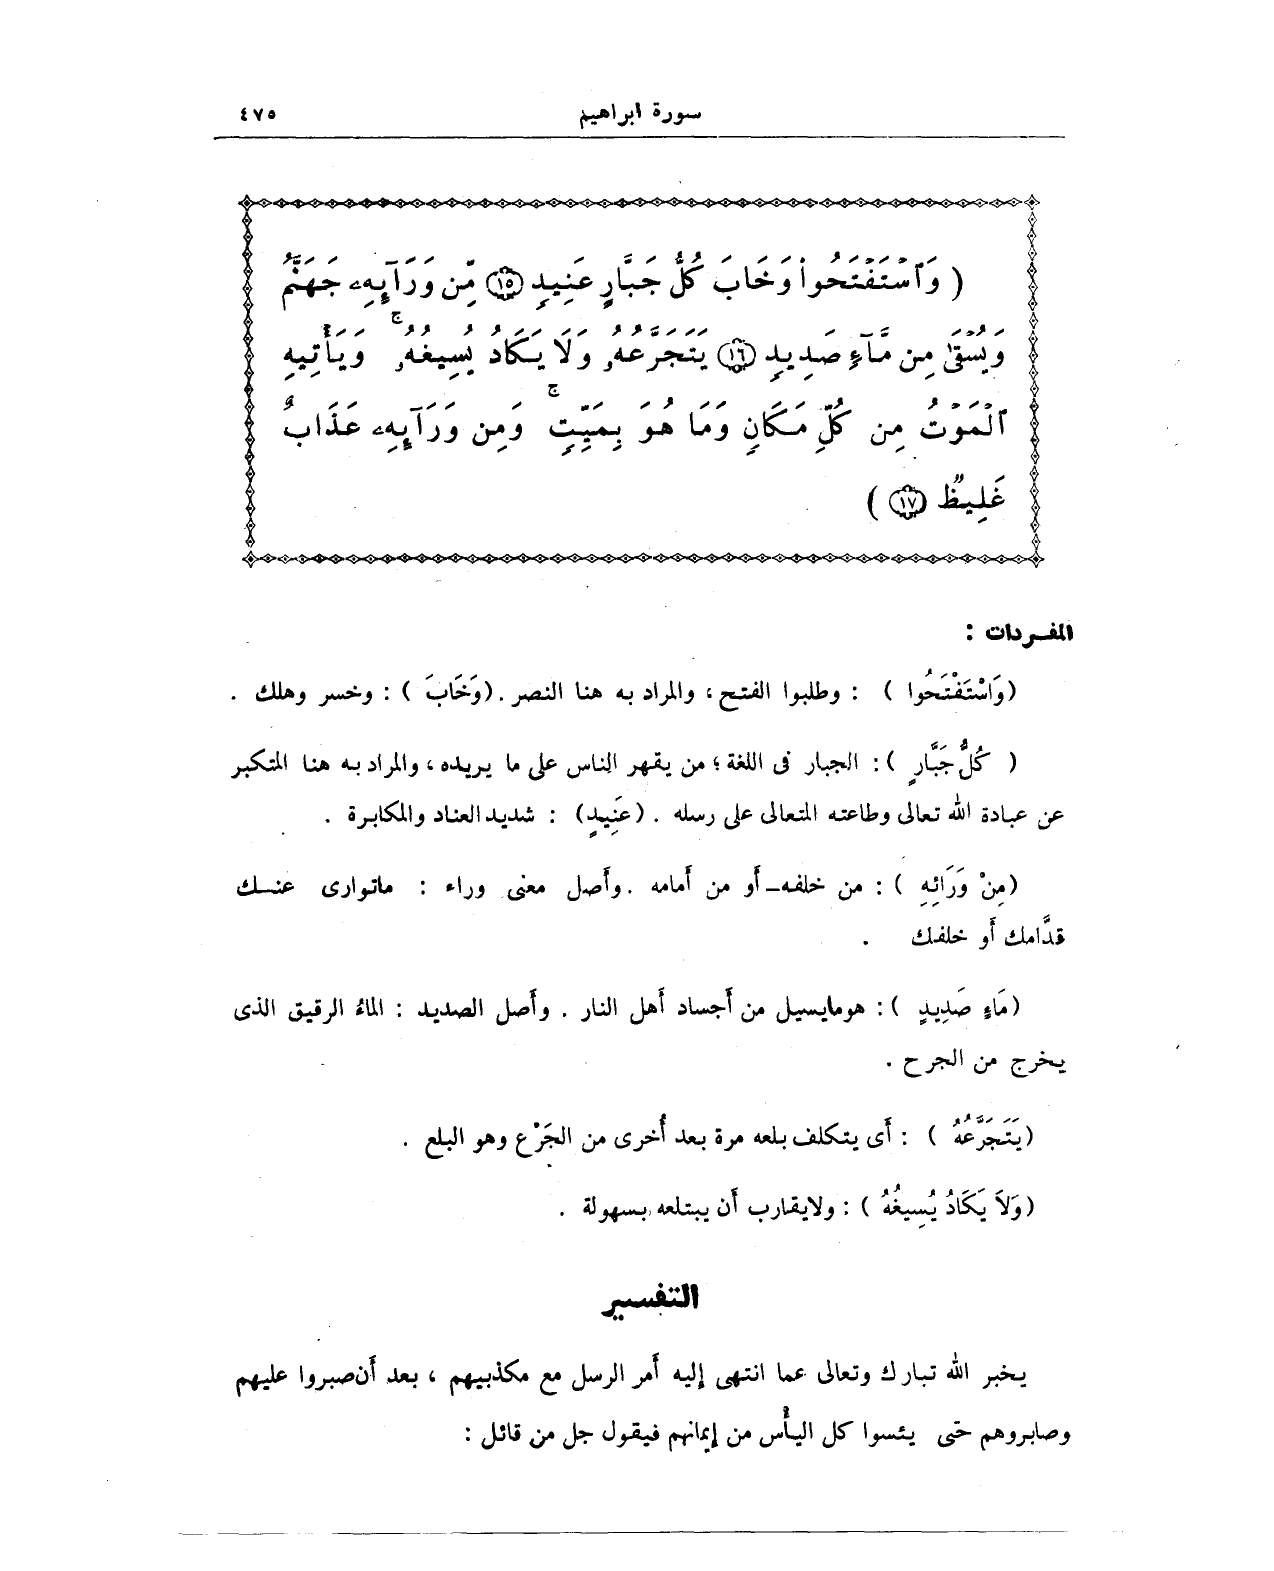 سورة ابراهيم
٤٧٥
( وَٱسْتَفْتَحُوا۟ وَخَابَ كُلُّ جَبَّارٍ عَنِيدٍ ١٥ مِّن وَرَآئِهِۦ جَهَنَّمُ
وَيُسْقَىٰ مِن مَّآءٍ صَدِيدٍ ١٦ يَتَجَرَّعُهُۥ وَلَا يَكَادُ يُسِيغُهُۥ ۚ وَيَأْتِيهِ
ٱلْمَوْتُ مِن كُلِّ مَكَانٍ وَمَا هُوَ بِمَيِّتٍ ۚ وَمِن وَرَآئِهِۦ عَذَابٌ
غَلِيظٌ ١٧ )
المفردات :
(وَاسْتَفْتَحُوا ) : وطلبوا الفتح ، والمراد به هنا النصر . (وَخَابَ ) : وخسر وهلك .
( كُلُّ جَبَّارٍ ) : الجبار فى اللغة ؛ من يقهر الناس على ما يريده ، والمراد به هنا المتكبر
عن عبادة الله تعالى وطاعته المتعالى على رسله . (عَنِيدٍ) : شديد العناد والمكابرة .
(مِنْ وَرَائِهِ ) : من خلفه ـ أَو من أَمامه . وأَصل معنى وراء : ماتوارى عنـك
قدَّامك أَو خلفك .
(مَاءٍ صَدِيدٍ ) : هو مايسيل من أَجساد أَهل النار . وأَصل الصديد : الماءُ الرقيق الذى
يخرج من الجرح .
(يَتَجَرَّعُهُ ) : أَى يتكلف بلعه مرة بعد أُخرى من الجَرْع وهو البلع .
(وَلاَ يَكَادُ يُسِيغُهُ ) : ولايقارب أَن يبتلعه بسهولة .
التفسير
يخبر الله تبارك وتعالى عما انتهى إِليه أَمر الرسل مع مكذبيهم ، بعد أَن صبروا عليهم
وصابروهم حتى يئسوا كل اليأْس من إِيمانهم فيقول جل من قائل :